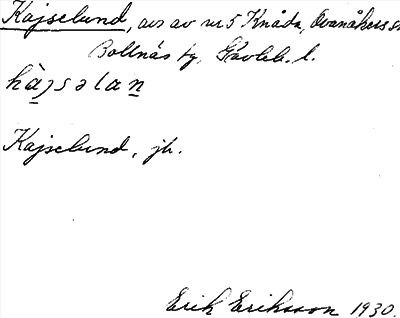 Kajselund, avs av nr 5 Knåda, Ovanåkers sn
Bollnäs tg, Gävleb. l.
hàjsəlan
Kajselund, jb.
Erik Eriksson 1930.